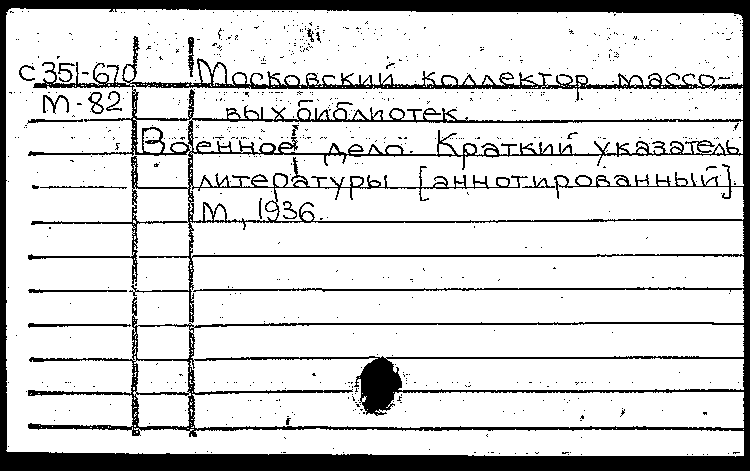 С351-670 Московский коллектор массо-
М-82 вых библиотек.
Военное дело. Краткий указатель
литературы [аннотированный].
М., 1936.